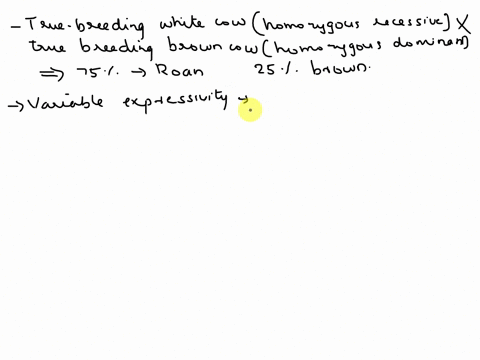 - True-breeding white cow (homozygous recessive) X
true breeding brown cow (homozygous dominant)
⇒ 75% → Roan 25% brown.
→ Variable expressivity →